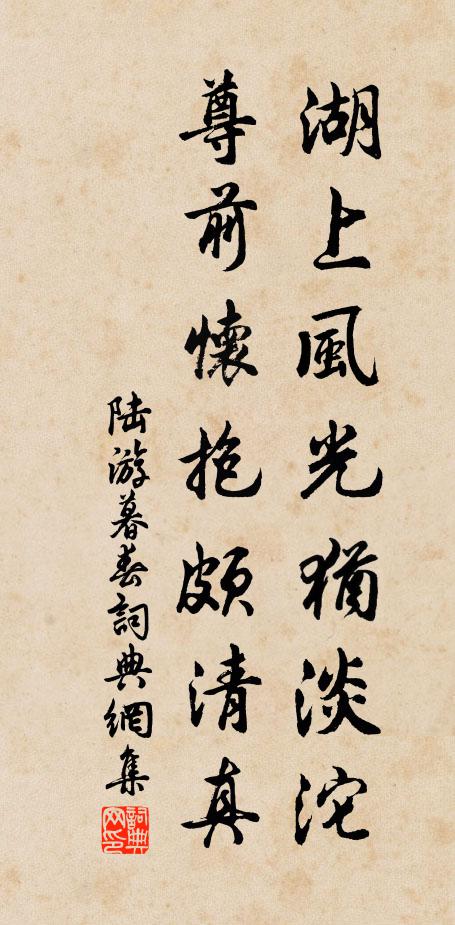 湖上風光猶淡沱
尊前懷抱頗清真
陸游暮春詞典網集
詞典网印